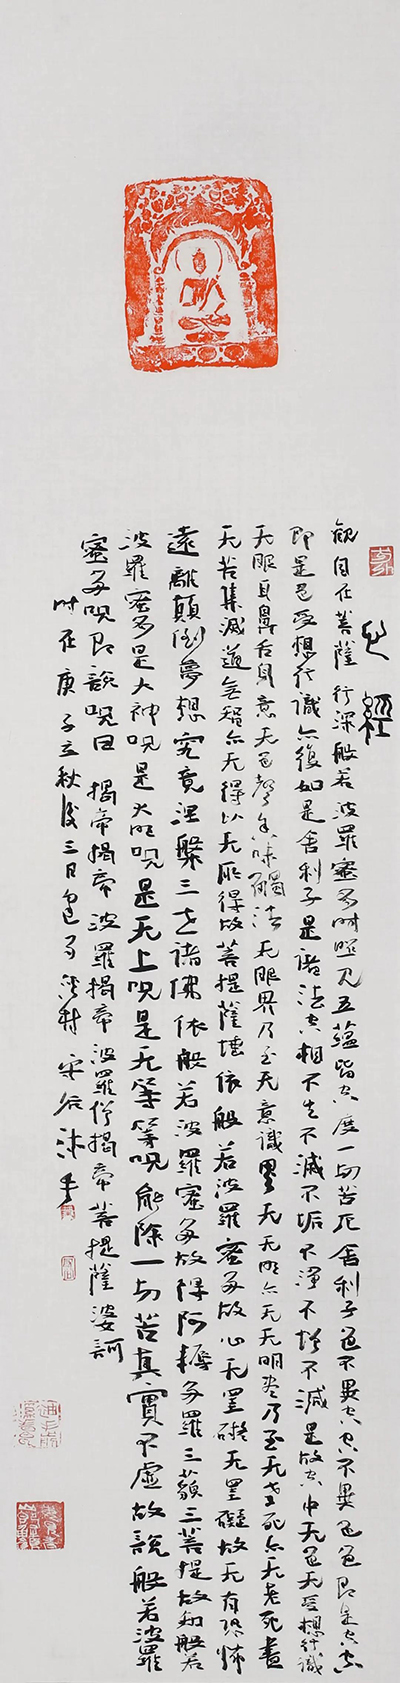 心經
觀自在菩薩行深般若波羅蜜多時照見五蘊皆空度一切苦厄舍利子色不異空空不異色色即是空空
即是色受想行識亦復如是舍利子是諸法空相不生不滅不垢不淨不增不減是故空中无色无受想行識
无眼耳鼻舌身意无色聲香味觸法无眼界乃至无意識界无无明亦无无明盡乃至无老死亦无老死盡
无苦集滅道无智亦无得以无所得故菩提薩埵依般若波羅蜜多故心无罣礙无罣礙故无有恐怖
遠離顛倒夢想究竟涅槃三世諸佛依般若波羅蜜多故得阿耨多羅三藐三菩提故知般若
波羅蜜多是大神呪是大明呪是无上呪是无等等呪能除一切苦真實不虛故說般若波羅
蜜多呪即說呪曰揭帝揭帝波羅揭帝波羅僧揭帝菩提薩婆訶
时在庚子立秋後三日沐手